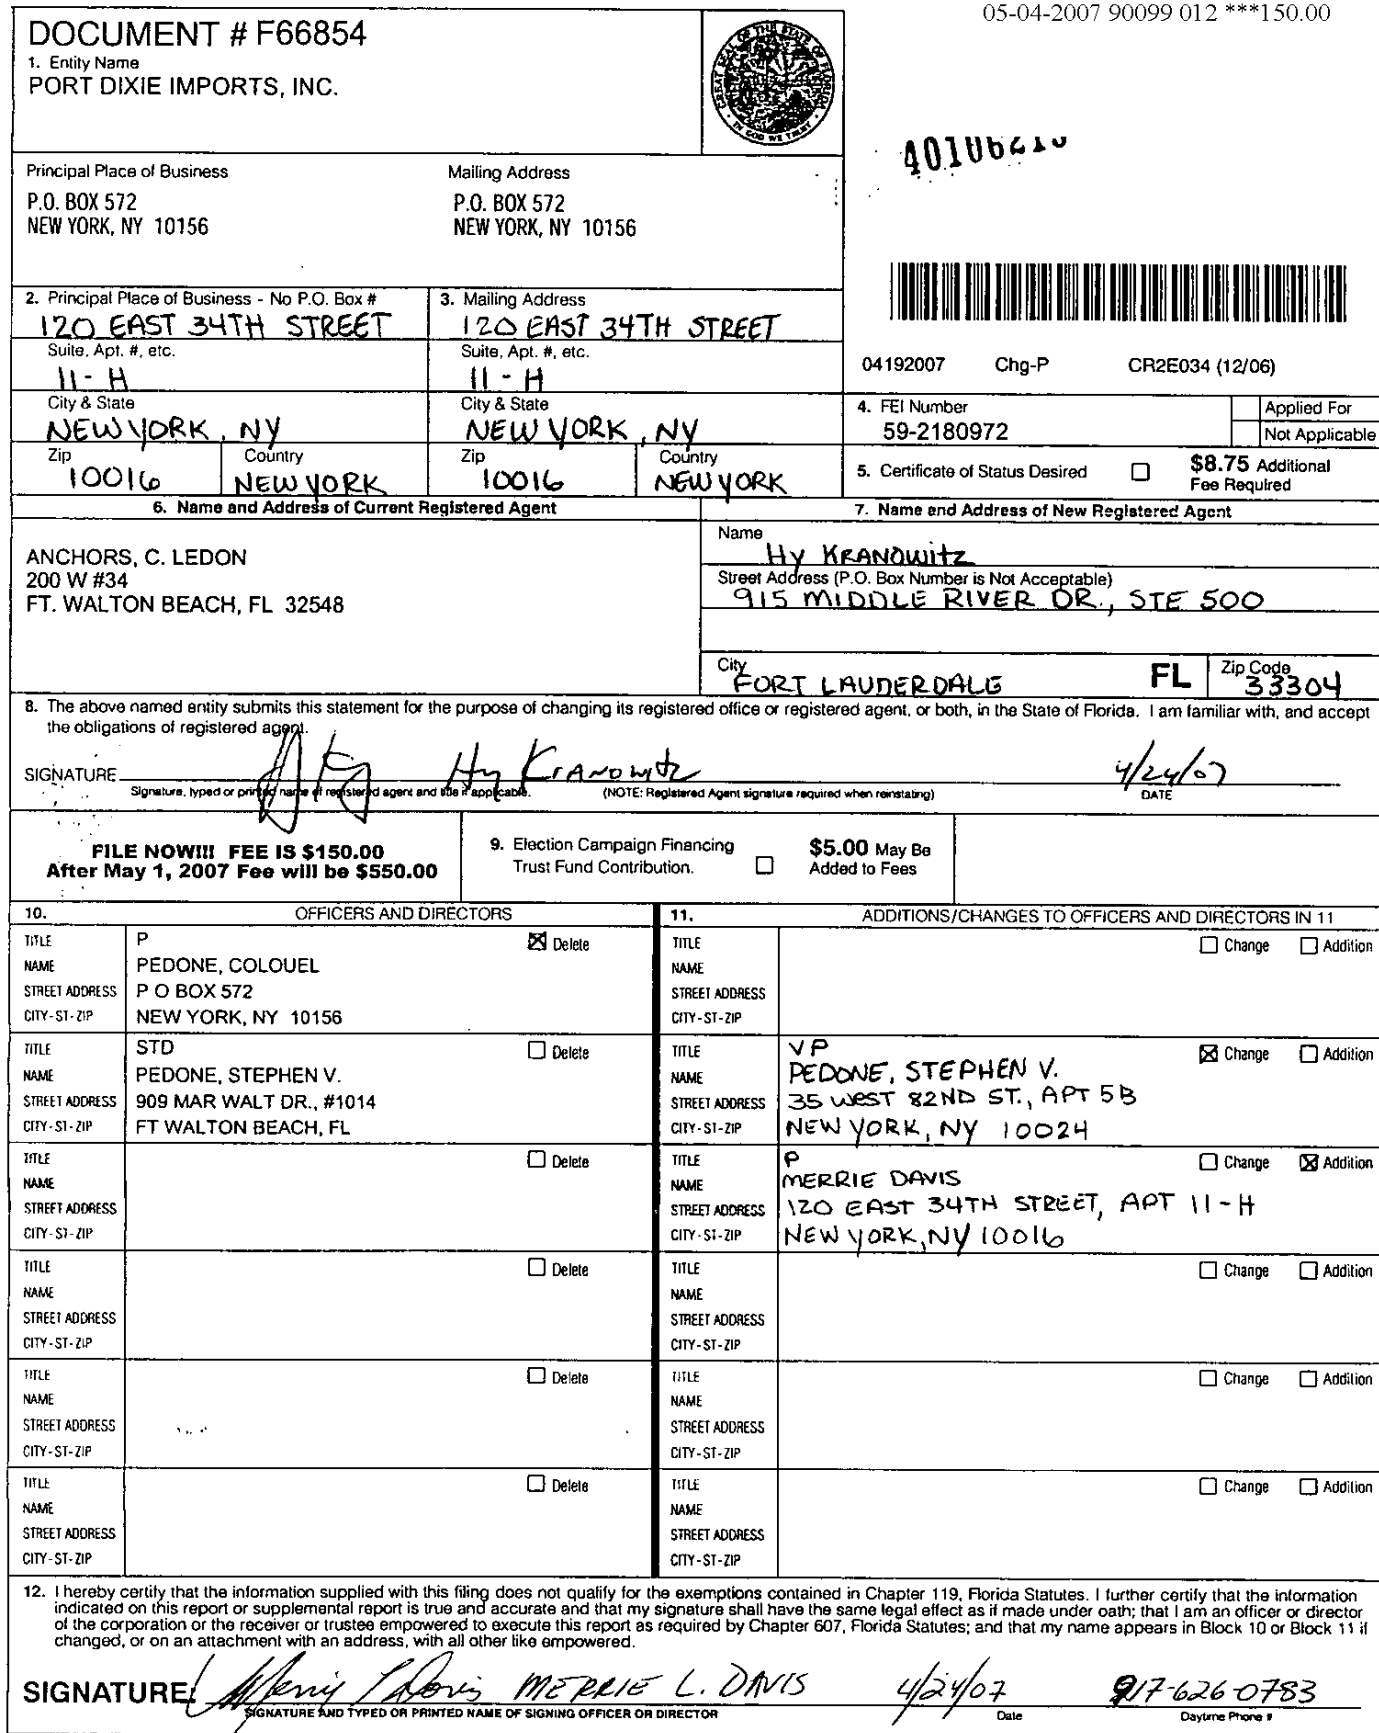 05-04-2007 90099 012 ***150.00
DOCUMENT # F66854
1. Entity Name
PORT DIXIE IMPORTS, INC.
GREAT SEAL OF THE STATE OF FLORIDA
IN GOD WE TRUST
Principal Place of Business
P.O. BOX 572
NEW YORK, NY 10156
Mailing Address
P.O. BOX 572
NEW YORK, NY 10156
2. Principal Place of Business - No P.O. Box #
120 EAST 34TH STREET
Suite, Apt. #, etc.
11-H
City & State
NEW YORK, NY
Zip
10016
Country
NEW YORK
3. Mailing Address
120 EAST 34TH STREET
Suite, Apt. #, etc.
11-H
City & State
NEW YORK, NY
Zip
10016
Country
NEW YORK
04192007 Chg-P CR2E034 (12/06)
4. FEI Number
59-2180972
Applied For
Not Applicable
5. Certificate of Status Desired
$8.75 Additional
Fee Required
6. Name and Address of Current Registered Agent
ANCHORS, C. LEDON
200 W #34
FT. WALTON BEACH, FL 32548
7. Name and Address of New Registered Agent
Name
Hy KRANOWITZ
Street Address (P.O. Box Number is Not Acceptable)
915 MIDDLE RIVER DR., STE 500
City
FORT LAUDERDALE
FL
Zip Code
33304
8. The above named entity submits this statement for the purpose of changing its registered office or registered agent, or both, in the State of Florida. I am familiar with, and accept
the obligations of registered agent.
SIGNATURE Hy KRANOWITZ 4/24/07
Signature, typed or printed name of registered agent and title if applicable. (NOTE: Registered Agent signature required when reinstating) DATE
FILE NOW!!! FEE IS $150.00
After May 1, 2007 Fee will be $550.00
9. Election Campaign Financing
Trust Fund Contribution.
$5.00 May Be
Added to Fees
10. OFFICERS AND DIRECTORS
TITLE P Delete
NAME PEDONE, COLOUEL
STREET ADDRESS P O BOX 572
CITY-ST-ZIP NEW YORK, NY 10156
TITLE STD Delete
NAME PEDONE, STEPHEN V.
STREET ADDRESS 909 MAR WALT DR., #1014
CITY-ST-ZIP FT WALTON BEACH, FL
TITLE Delete
NAME
STREET ADDRESS
CITY-ST-ZIP
TITLE Delete
NAME
STREET ADDRESS
CITY-ST-ZIP
TITLE Delete
NAME
STREET ADDRESS
CITY-ST-ZIP
TITLE Delete
NAME
STREET ADDRESS
CITY-ST-ZIP
11. ADDITIONS/CHANGES TO OFFICERS AND DIRECTORS IN 11
TITLE Change Addition
NAME
STREET ADDRESS
CITY-ST-ZIP
TITLE VP Change Addition
NAME PEDONE, STEPHEN V.
STREET ADDRESS 35 WEST 82ND ST., APT 5B
CITY-ST-ZIP NEW YORK, NY 10024
TITLE P Change Addition
NAME MERRIE DAVIS
STREET ADDRESS 120 EAST 34TH STREET, APT 11-H
CITY-ST-ZIP NEW YORK, NY 10016
TITLE Change Addition
NAME
STREET ADDRESS
CITY-ST-ZIP
TITLE Change Addition
NAME
STREET ADDRESS
CITY-ST-ZIP
TITLE Change Addition
NAME
STREET ADDRESS
CITY-ST-ZIP
12. I hereby certify that the information supplied with this filing does not qualify for the exemptions contained in Chapter 119, Florida Statutes. I further certify that the information
indicated on this report or supplemental report is true and accurate and that my signature shall have the same legal effect as if made under oath; that I am an officer or director
of the corporation or the receiver or trustee empowered to execute this report as required by Chapter 607, Florida Statutes; and that my name appears in Block 10 or Block 11 if
changed, or on an attachment with an address, with all other like empowered.
SIGNATURE: Merrie L Davis MERRIE L. DAVIS 4/24/07 917-626-0783
SIGNATURE AND TYPED OR PRINTED NAME OF SIGNING OFFICER OR DIRECTOR Date Daytime Phone #